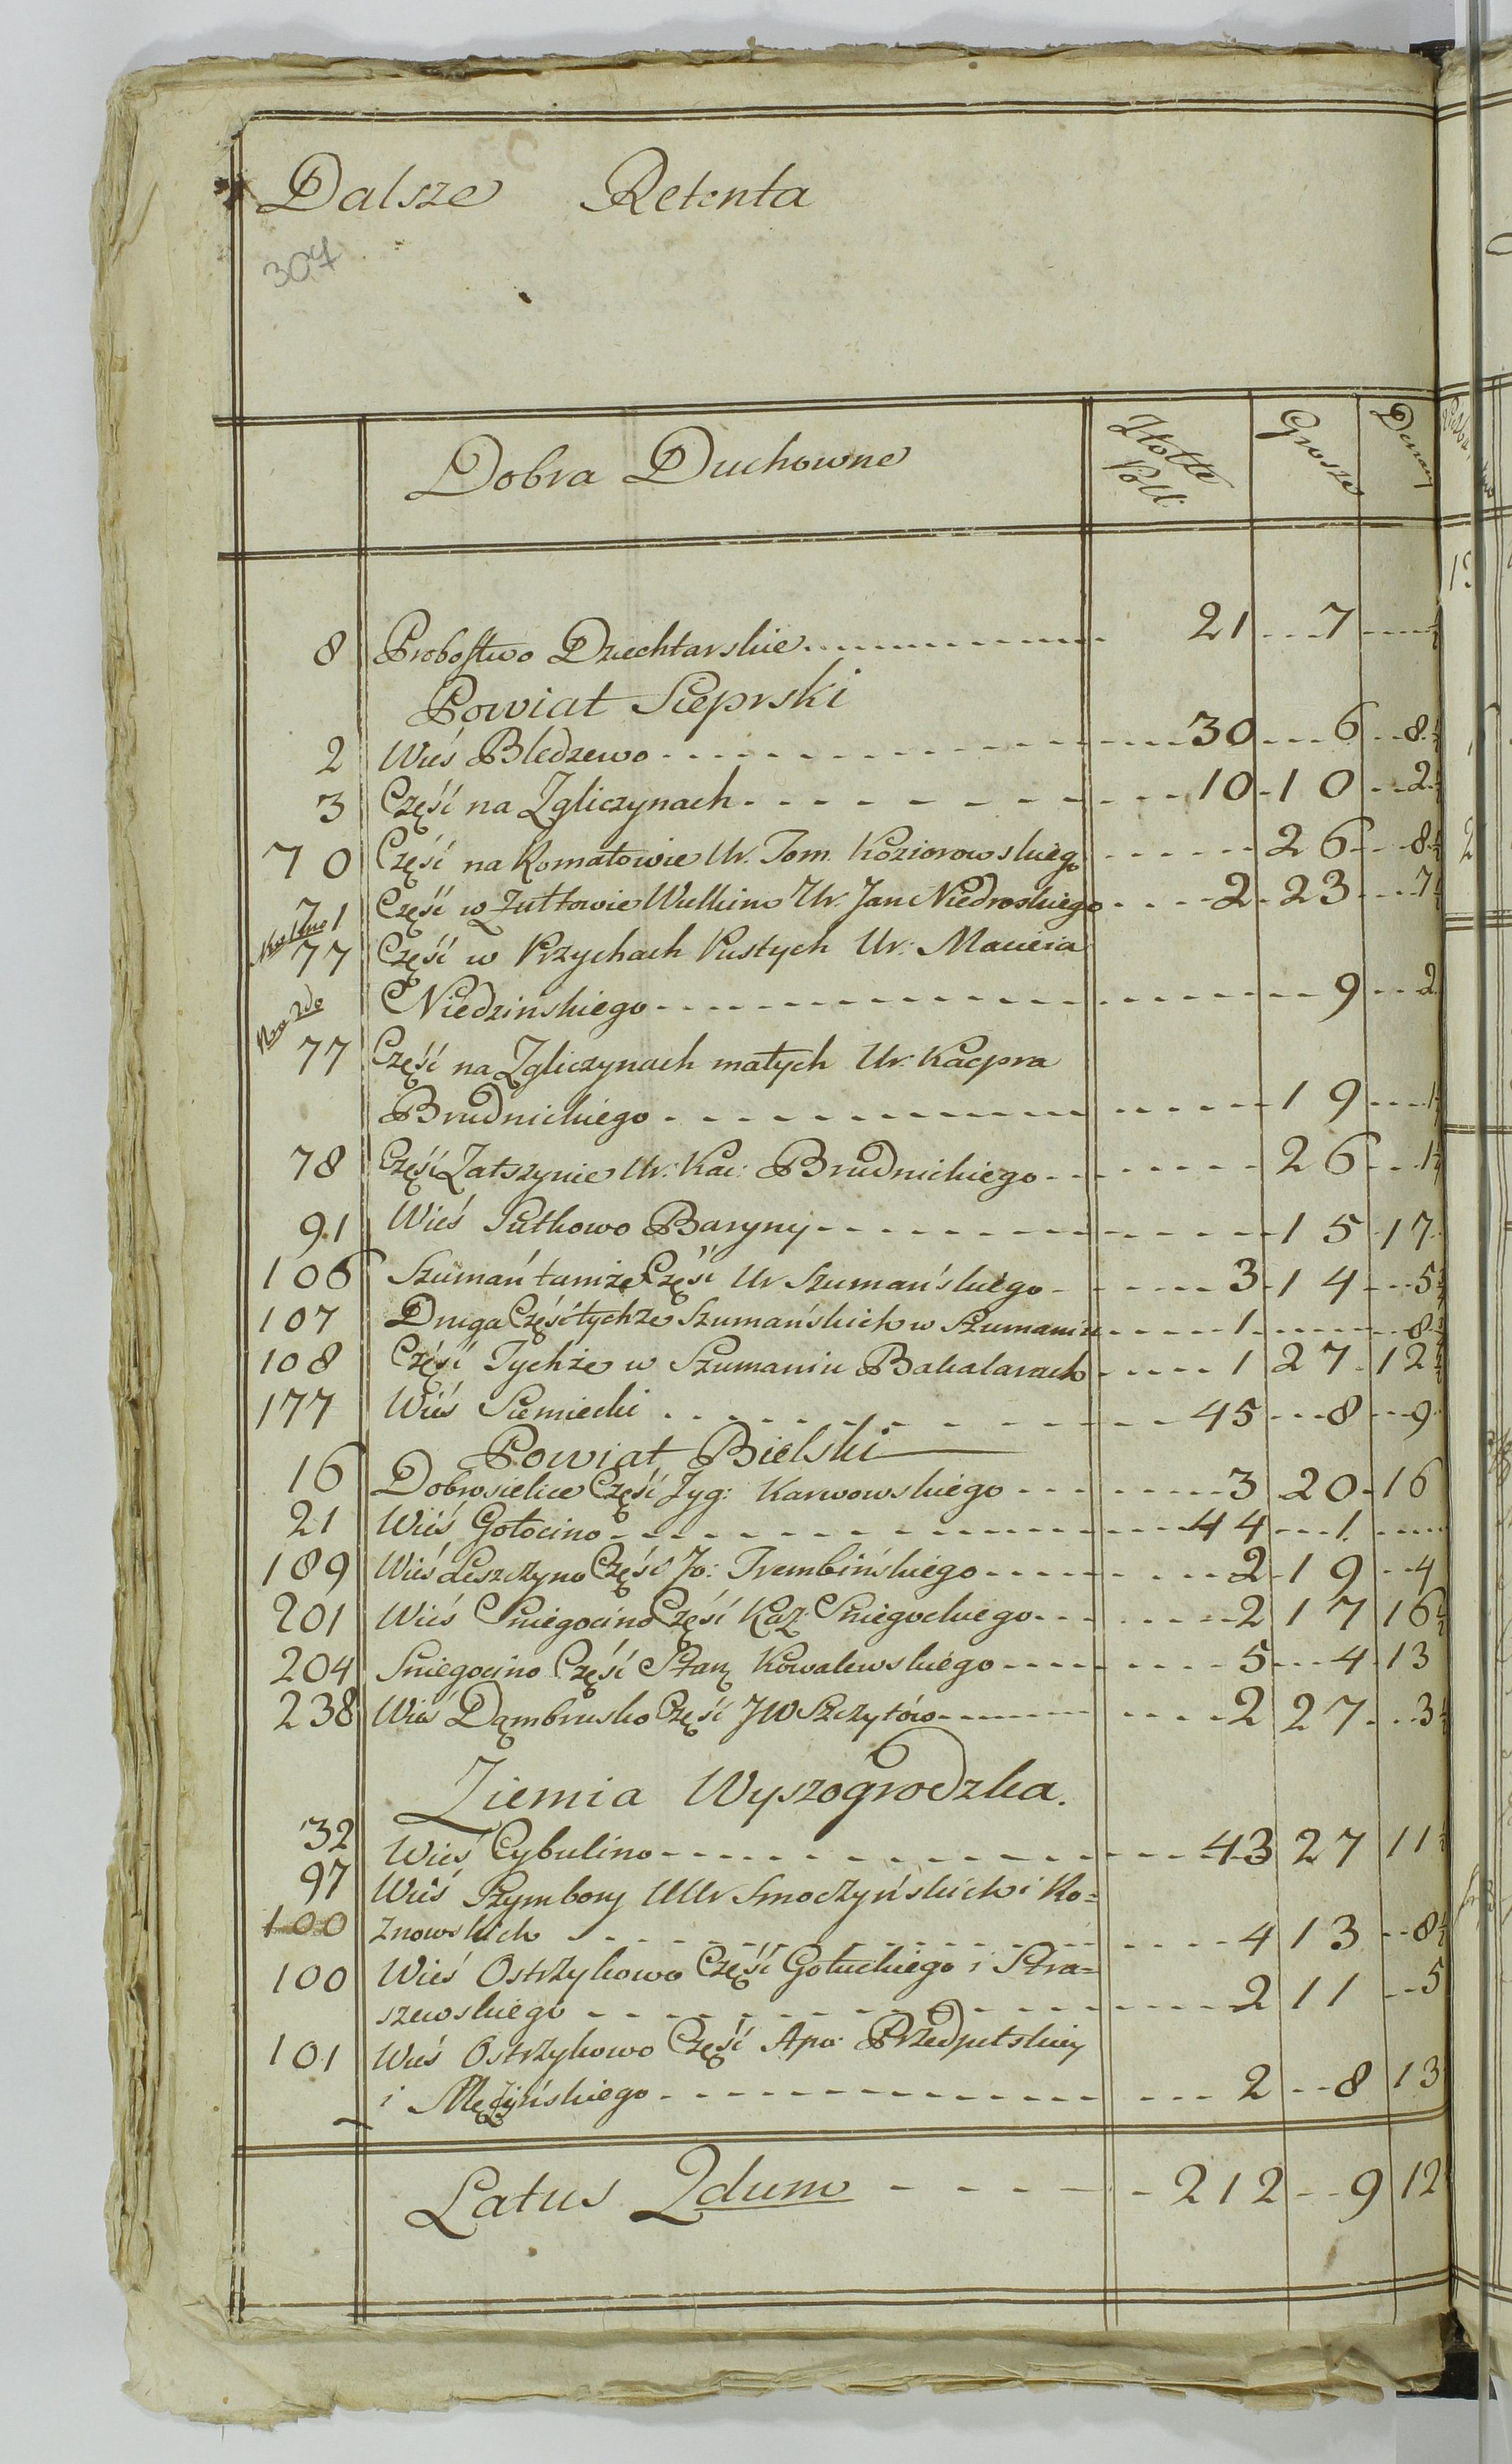 Dalsze Retenta
307
Dobra Duchowne Złotte Poll: Grosze Denary
8 Probostwo Dziechtarskie 21 7
Powiat Sieprski
2 Wieś Bledzewo 30 6 8
3 Część na Zgliczynach 10 10 2
70 Część na Romatowie Ur. Tom. Koziorowskiego 26 8
71 Część w Żuttowie Wulkim Ur. Jan Niedroskiego 2 23 7
Nro 1mo
77 Część w Krzychach Pustych Ur: Macieia
Niedzinskiego 9 2
Nro 2do
77 Część na Zgliczynach małych Ur: Kacpra
Brudnickiego 19 1
78 Część Zatszynie Ur: Kac: Brudnickiego 26 1
91 Wieś Sutkowo Baryny 15 17
106 Szumań tamże Część Ur Szumańskiego 3 14 5
107 Druga Część tychże Szumańskich w Szumaniu 1 8
108 Część Tychże w Szumaniu Bakalarach 1 27 12
177 Wieś Siemiecki 45 8 9
Powiat Bielski
16 Dobrosielice Część Zyg: Karwowskiego 3 20 16
21 Wieś Gołocino 44 1
189 Wieś Leszczyno Część Jo: Trembińskiego 2 19 4
201 Wieś Sniegocino Część Kaz: Sniegockiego 2 17 16
204 Sniegocino Część Stan Kowalewskiego 5 4 13
238 Wieś Dąmbrusko Część JW Szczytów 2 27 3
Ziemia Wyszogrodzka.
32 Wieś Cybulino 43 27 11
97 Wieś Szymbory UUr Smoczyńskich i Ko=
100 znowskich 4 13 8
100 Wieś Ostrzykowo Część Gołuckiego i Stra=
szewskiego 2 11 5
101 Wieś Ostrzykowo Część Apo: Przedpełskiey
i Mężyńskiego 2 8 13
Latus 2dum 212 9 12